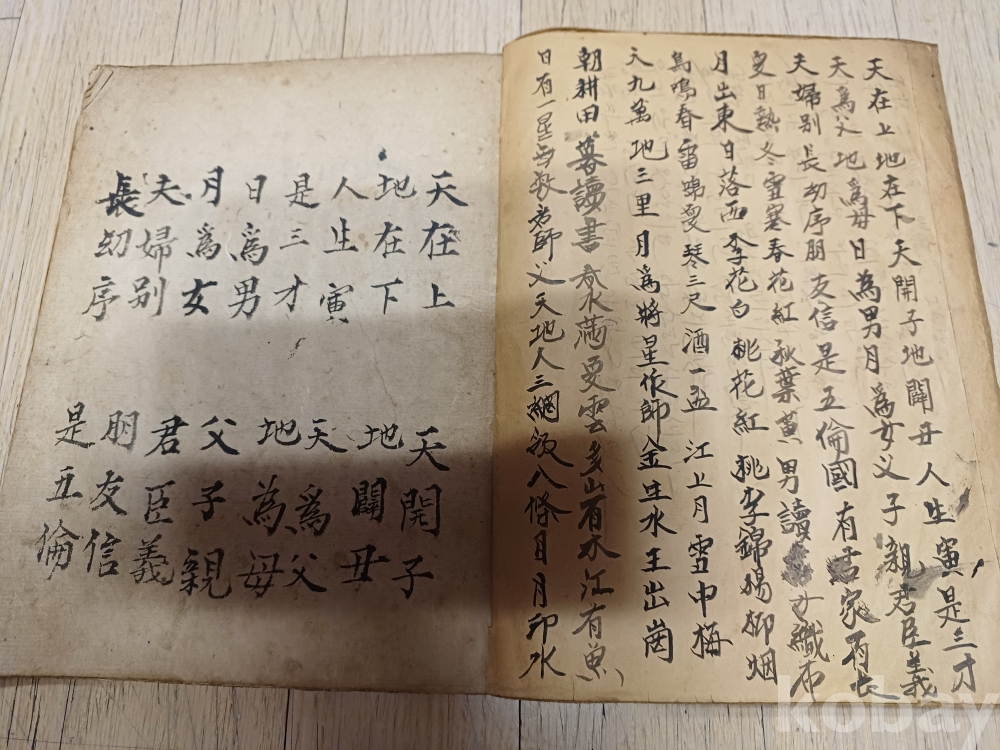 天在上地在下天開子地闢丑人生寅是三才
天爲父地爲母日為男月為女父子親君臣義
夫婦別長幼序朋友信是五倫國有君家有長
夏日熱冬雪寒春花紅秋葉黃男讀女織布
月出東日落西李花白桃花紅桃李錦楊柳烟
鳥鳴春雷鳴夏琴三尺酒一盃江上月雪中梅
天九萬地三里月爲將星作師金生水玉出崗
朝耕田暮讀書春水滿夏雲多山有水江有魚
日有一星無數君師父天地人三綱領八條目月印水
天在上 天開子
地在下 地闢丑
人生寅 天爲父
是三才 地為母
日爲男 父子親
月爲女 君臣義
夫婦別 朋友信
長幼序 是五倫
kobay